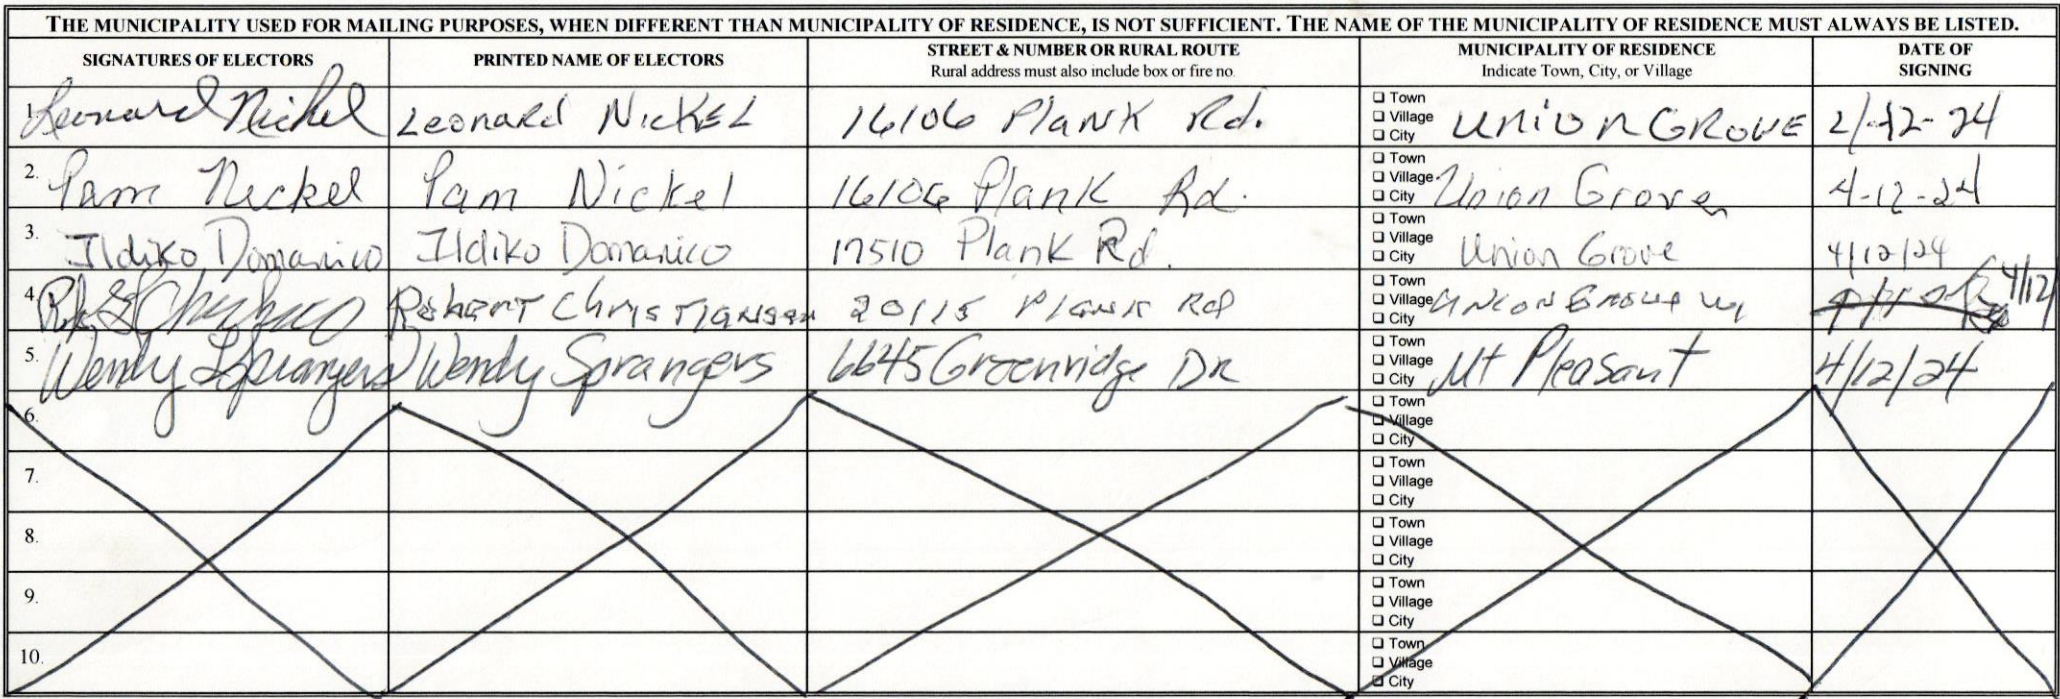 THE MUNICIPALITY USED FOR MAILING PURPOSES, WHEN DIFFERENT THAN MUNICIPALITY OF RESIDENCE, IS NOT SUFFICIENT. THE NAME OF THE MUNICIPALITY OF RESIDENCE MUST ALWAYS BE LISTED.
SIGNATURES OF ELECTORS PRINTED NAME OF ELECTORS STREET & NUMBER OR RURAL ROUTE Rural address must also include box or fire no. MUNICIPALITY OF RESIDENCE Indicate Town, City, or Village DATE OF SIGNING
1. Leonard Nickel Leonard Nickel 16106 Plank Rd. Town Village City Union Grove 4-12-24
2. Pam Nickel Pam Nickel 16106 Plank Rd. Town Village City Union Grove 4-12-24
3. Ildiko Domanico Ildiko Domanico 17510 Plank Rd. Town Village City Union Grove 4/12/24
4. Robert Christiansen 20115 Plank Rd Town Village City Union Grove WI 4/12
5. Wendy L Sprangers Wendy Sprangers 6645 Greenridge DR Town Village City Mt Pleasant 4/12/24
6. Town Village City
7. Town Village City
8. Town Village City
9. Town Village City
10. Town Village City